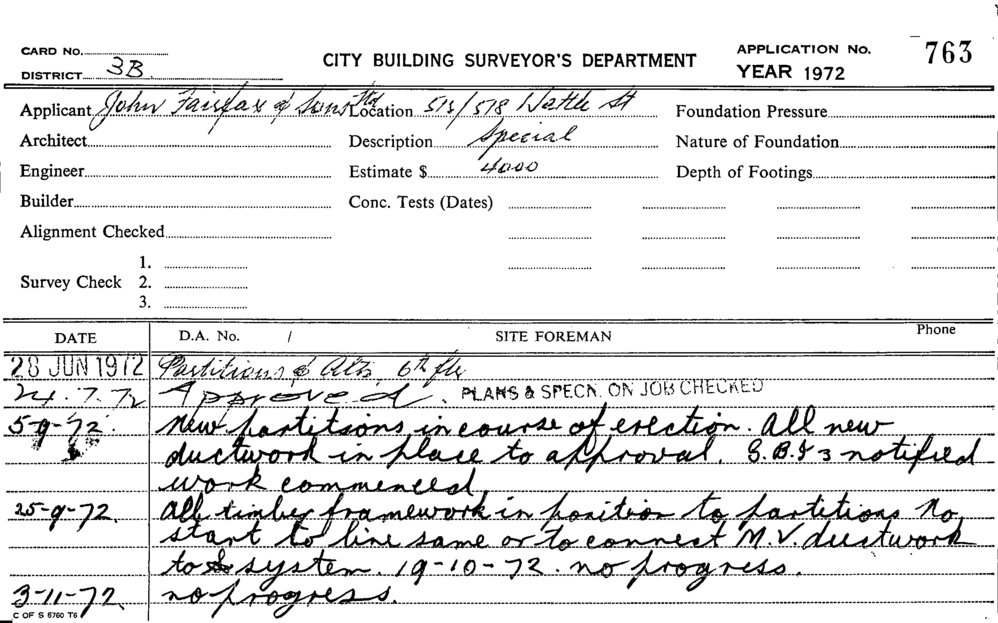 CARD No.
DISTRICT 3B
CITY BUILDING SURVEYOR'S DEPARTMENT
APPLICATION No. 763
YEAR 1972
Applicant John Fairfax & Sons Pty Location 513/578 Wattle St Foundation Pressure
Architect Description Special Nature of Foundation
Engineer Estimate $ 4000 Depth of Footings
Builder Conc. Tests (Dates)
Alignment Checked
1.
Survey Check 2.
3.
DATE D.A. No. / SITE FOREMAN Phone
28 JUN 1972 Partitions & Alts, 6th flr
24.7.72 Approved. PLANS & SPECN. ON JOB CHECKED
5-9-72. New partitions in course of erection. All new
ductwork in place to approval. notified
work commenced
25-9-72. All timber framework in position to partitions No
start to line same or to connect M.V. ductwork
to system. 19-10-72. no progress.
3-11-72. no progress.
C OF S 6760 T6